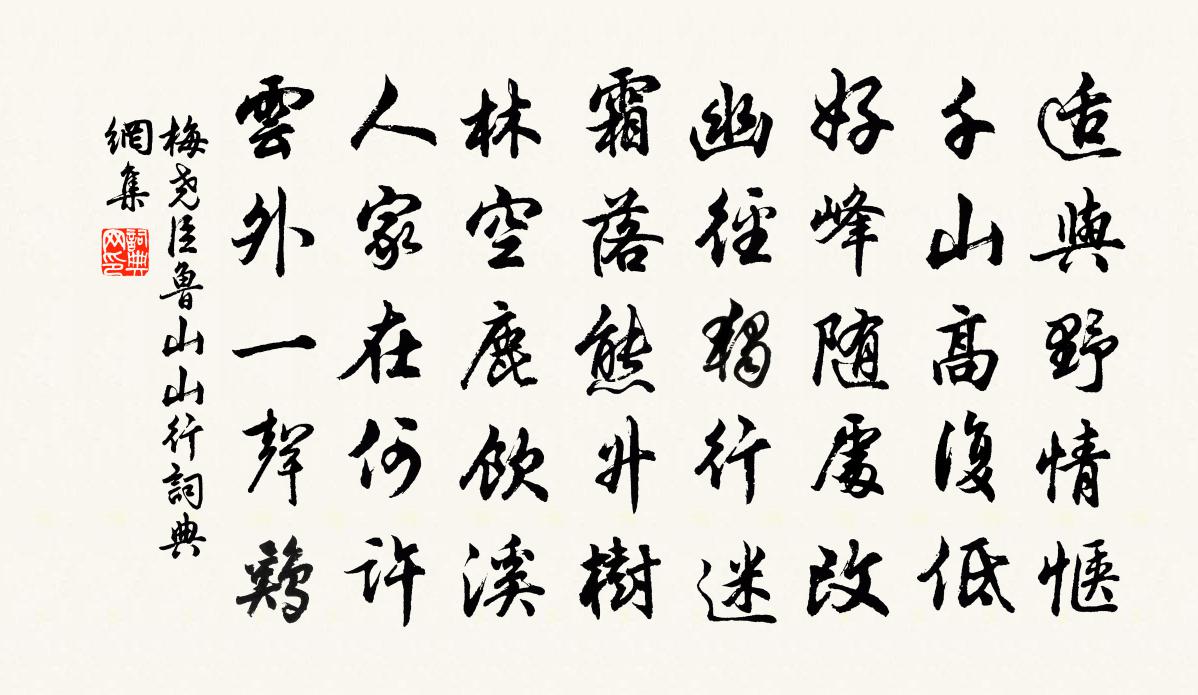 适與野情惬
千山髙復低
好峰随處改
幽徑獨行迷
霜落熊升樹
林空鹿飲溪
人家在何許
雲外一聲鷄
梅尧臣魯山山行詞典
網集
詞典網印